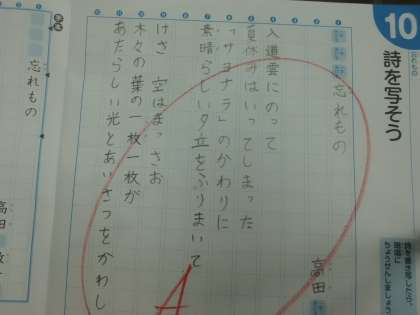 10
詩を写そう
忘れもの
高田
入道雲にのって
夏休みはいってしまった
「サヨナラ」のかわりに
素晴らしい夕立をふりまいて
けさ 空はまっさお
木々の葉の一枚一枚が
あたらしい光とあいさつをかわし
A
忘れもの
高田